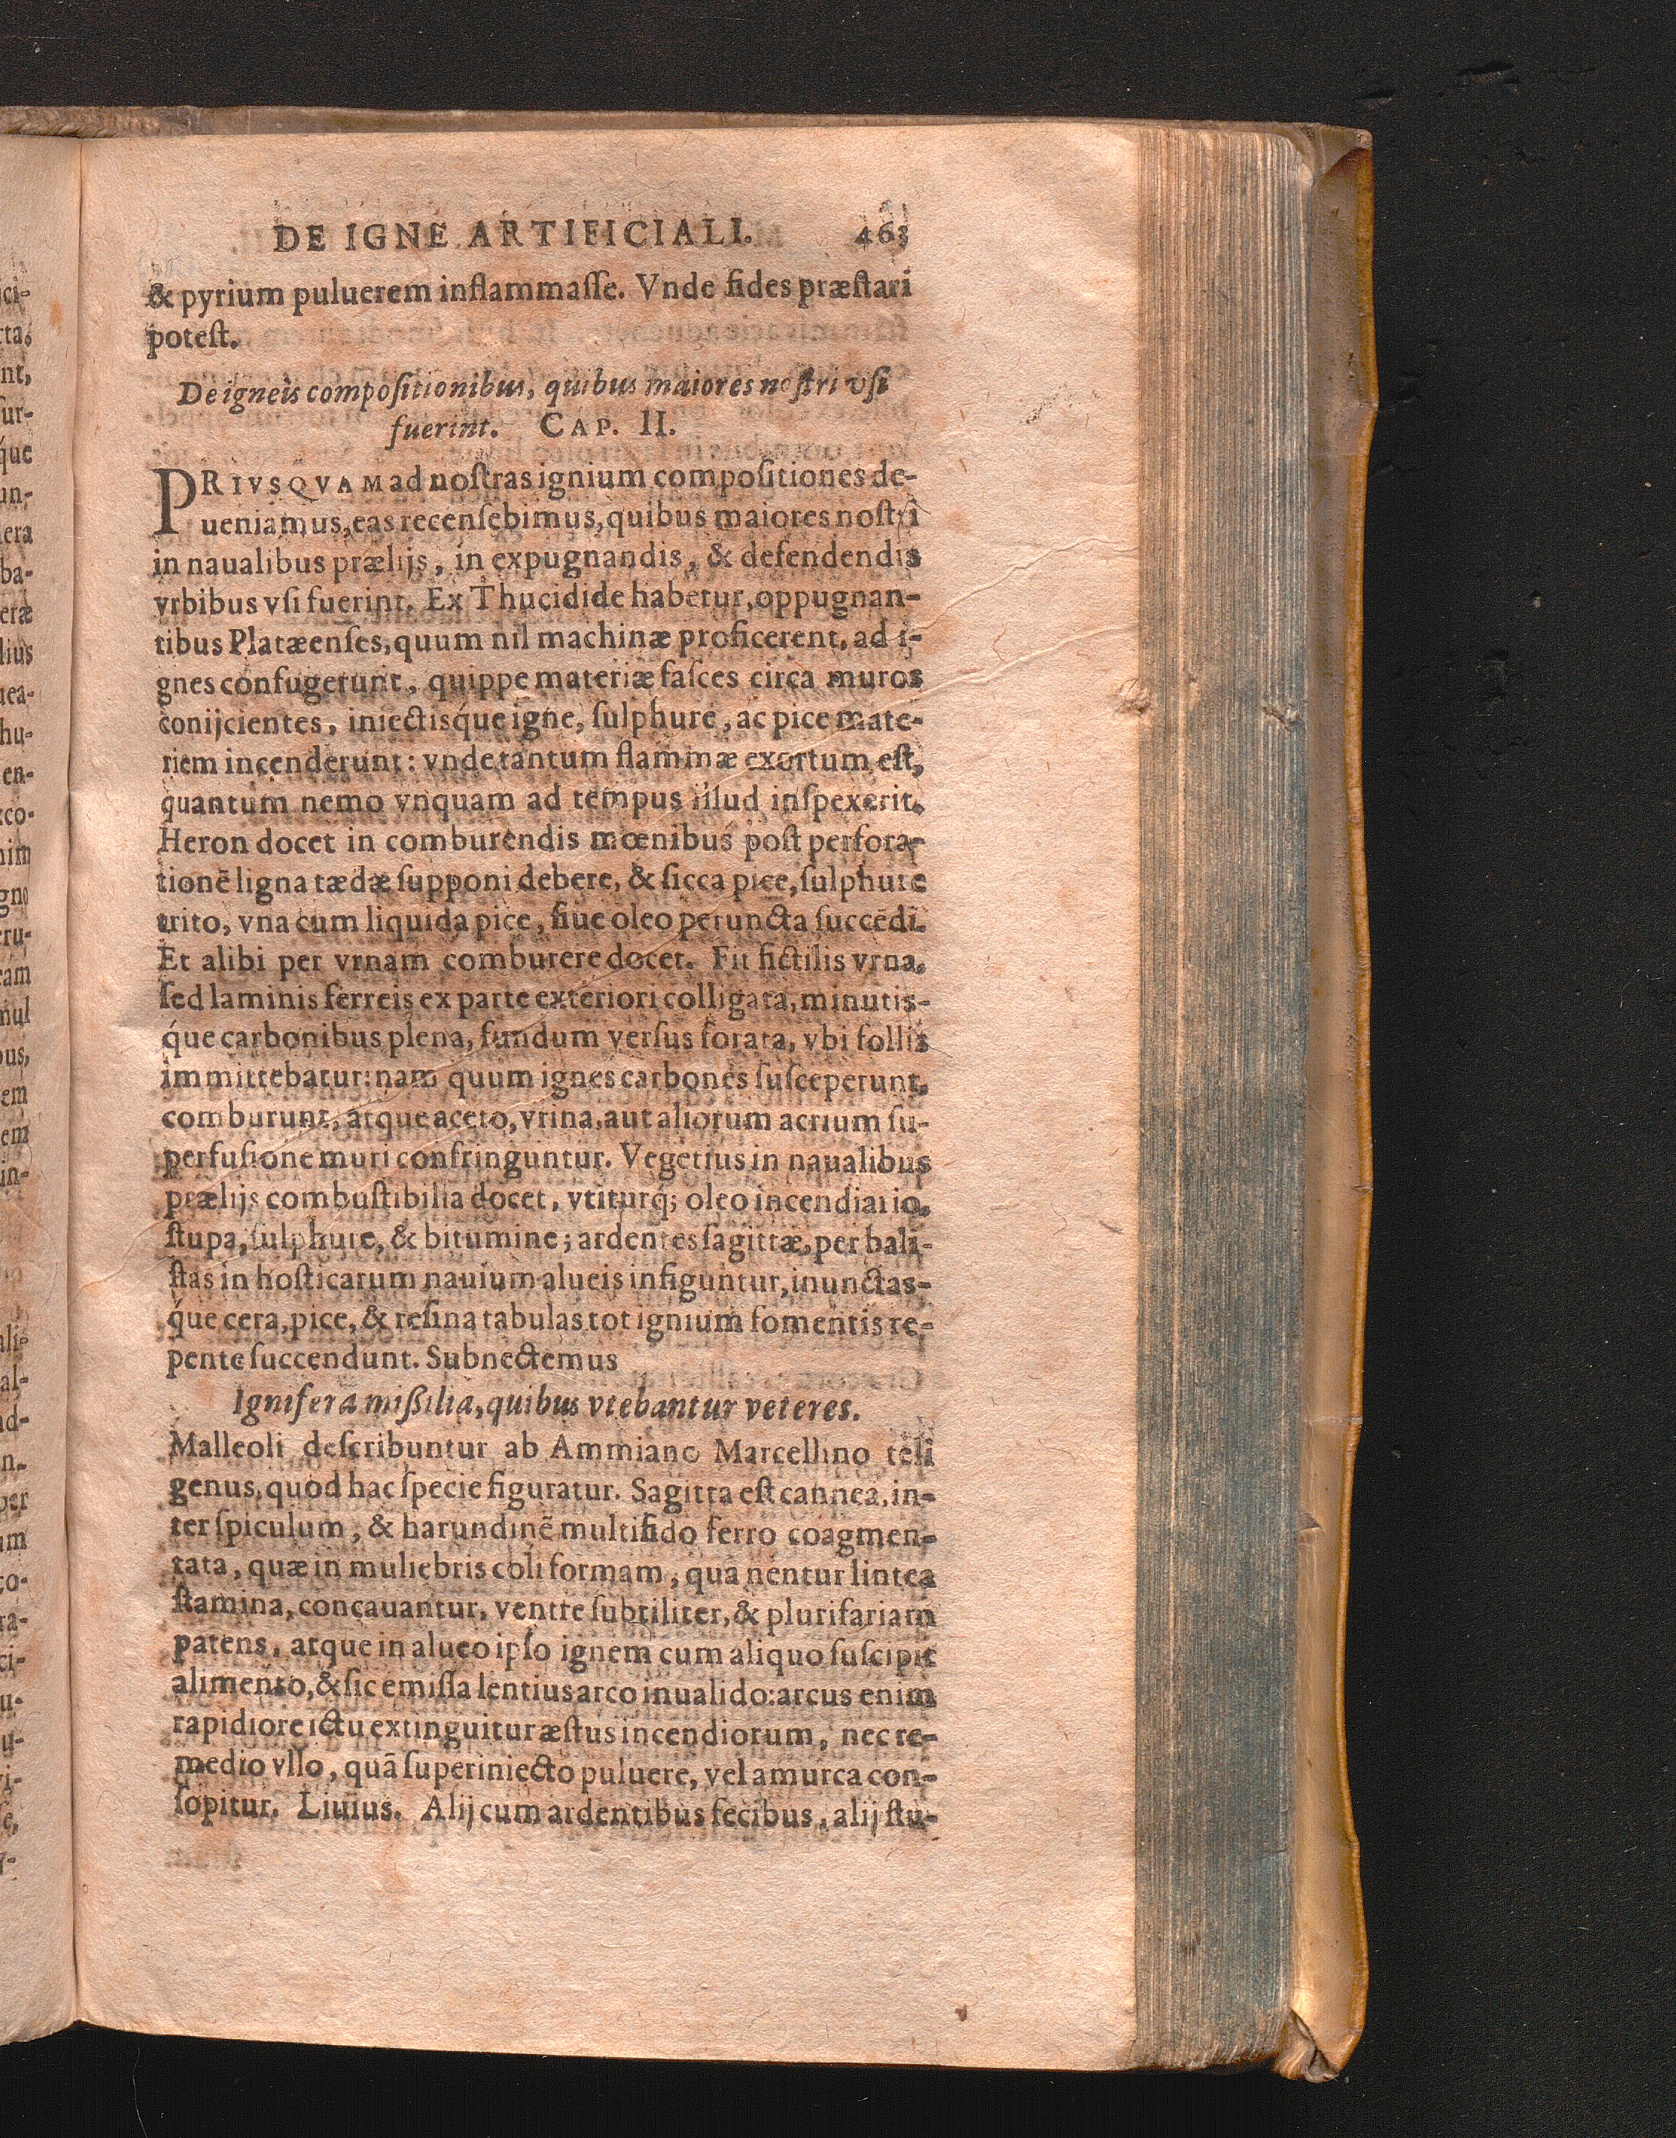 DE IGNE ARTIFICIALI. 463
& pyrium puluerem inflammaſſe. Vnde fides præſtari
poteſt.
De igneis compoſitionibus, quibus maiores noſtri vſi
fuerint. CAP. II.
PRIVSQVAM ad noſtras ignium compoſitiones de-
ueniamus, eas recenſebimus, quibus maiores noſtri
in naualibus prælijs, in expugnandis, & defendendis
vrbibus vſi fuerint. Ex Thucidide habetur, oppugnan-
tibus Platæenſes, quum nil machinæ proficerent, ad i-
gnes confugerunt, quippe materiæ faſces circa muros
conijcientes, iniectisq́ue igne, ſulphure, ac pice mate-
riem incenderunt: vnde tantum flammæ exortum eſt,
quantum nemo vnquam ad tempus illud inſpexerit.
Heron docet in comburendis mœnibus poſt perfora-
tionē ligna tædæ ſupponi debere, & ſicca pice, ſulphure
trito, vna cum liquida pice, ſiue oleo peruncta ſuccēdi.
Et alibi per vrnam comburere docet. Fit fictilis vrna,
ſed laminis ferreis ex parte exteriori colligata, minutis-
q́ue carbonibus plena, fundum verſus forata, vbi follis
immittebatur: nam quum ignes carbones ſuſceperunt,
comburunt, atque aceto, vrina, aut aliorum acrium ſu-
perfuſione muri confringuntur. Vegetius in naualibus
prælijs combuſtibilia docet, vtiturq́; oleo incendiario,
ſtupa, ſulphure, & bitumine; ardentes ſagittæ, per bali-
ſtas in hoſticarum nauium alueis infiguntur, inunctas-
q́ue cera, pice, & reſina tabulas tot ignium fomentis re-
pente ſuccendunt. Subnectemus
Ignifera mißilia, quibus vtebantur veteres.
Malleoli deſcribuntur ab Ammiano Marcellino teli
genus, quod hac ſpecie figuratur. Sagitta eſt cannea, in-
ter ſpiculum, & harundinē multifido ferro coagmen-
tata, quæ in muliebris coli formam, qua nentur lintea
ſtamina, concauantur, ventre ſubtiliter, & plurifariam
patens, atque in alueo ipſo ignem cum aliquo ſuſcipit
alimento, & ſic emiſſa lentius arco inualido: arcus enim
rapidiore ictu extinguitur æſtus incendiorum, nec re-
medio vllo, quā ſuperiniecto puluere, vel amurca con-
ſopitur. Liuius. Alij cum ardentibus fecibus, alij ſtu-